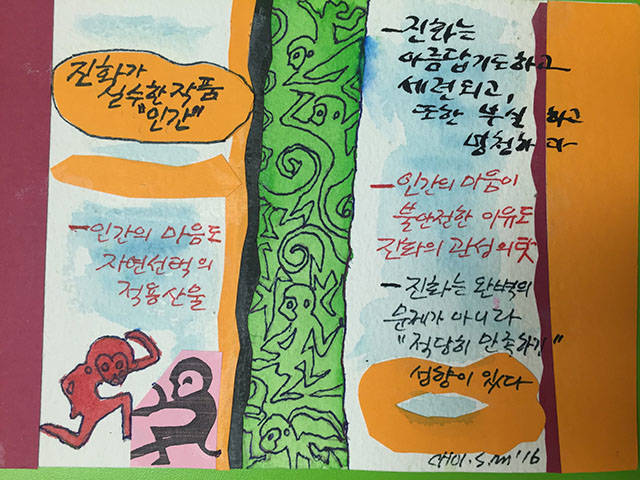 진화가
실수한 작품
"인간"
-인간의 마음도
자연선택의
적응산물
-진화는
아름답기도하고
세련되고,
또한 부실 하고
멍청하다
-인간의 마음이
불안전한 이유도
진화의 관성의 탓
-진화는 완벽의
문제가 아니라
"적당히 만족하기"
성향이 있다
CHOI.S.M '16